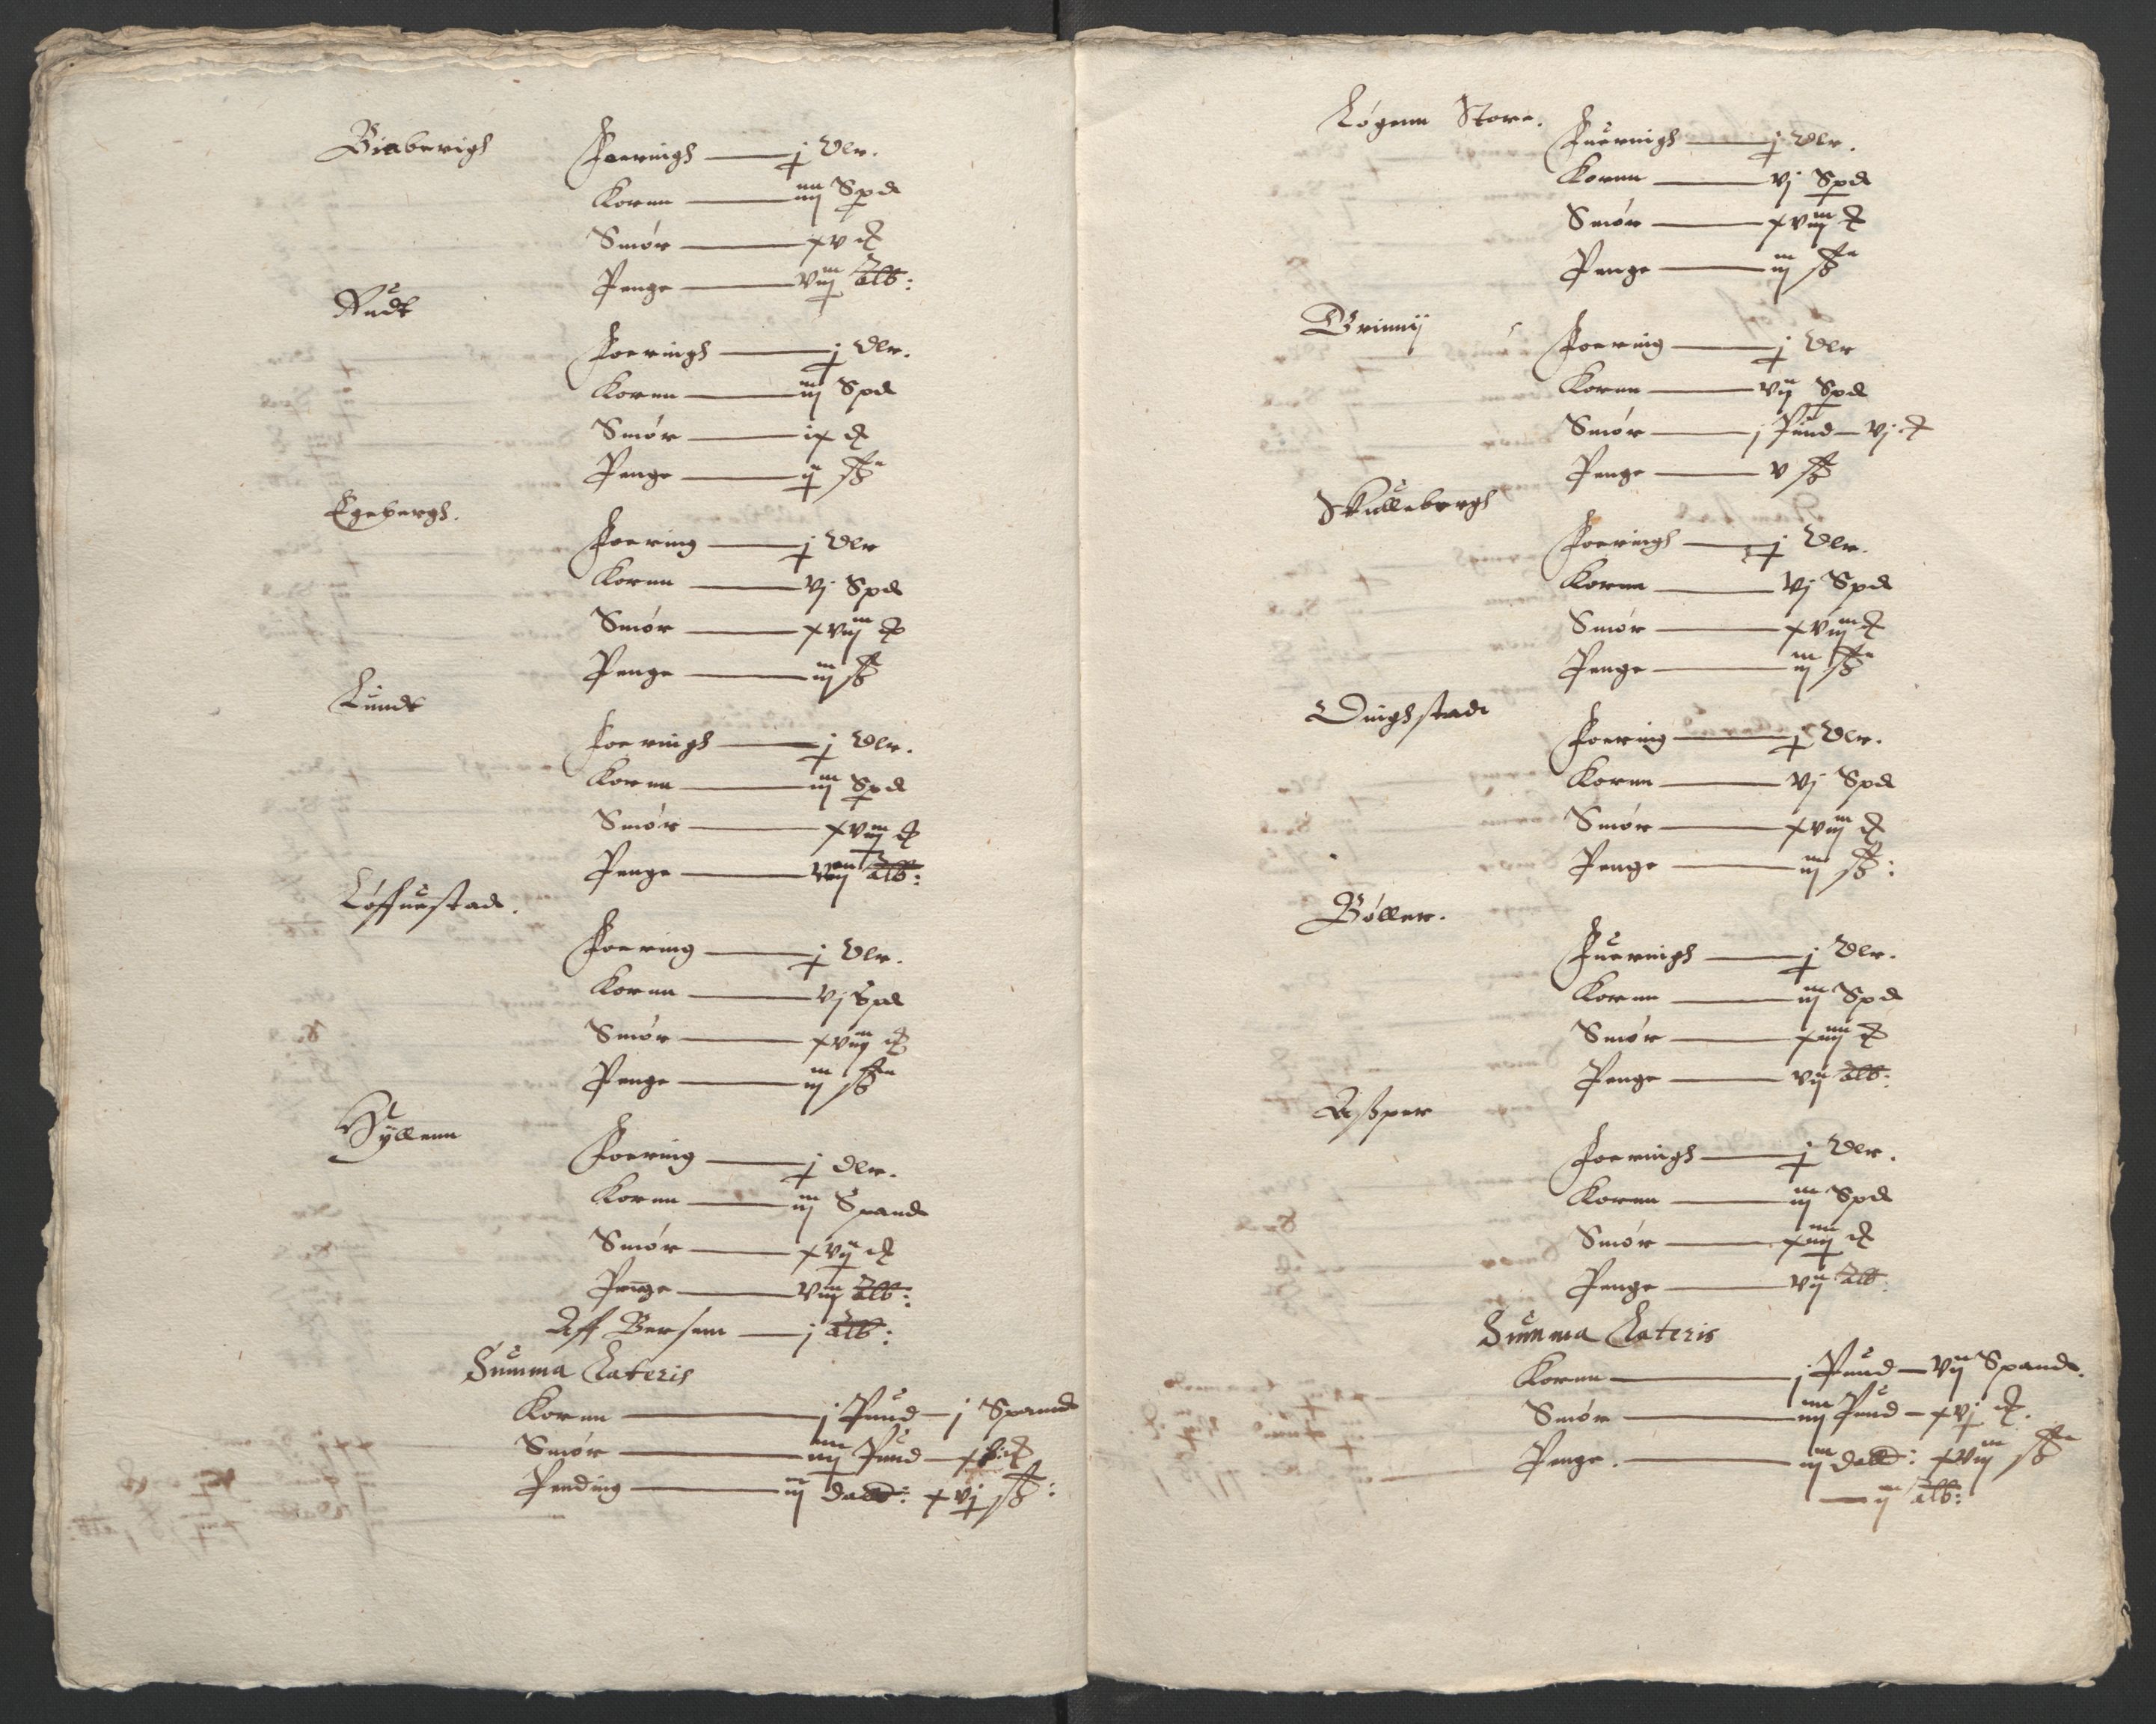 Biabergh
Foeringh — j Dlr.
Kornn — iiij Spd
Smør — xv ℔
Penge — viij alb:
Rudt
Foeringh — j Dlr.
Kornn — iij Spd
Smør — ix ℔
Penge — ij sß
Egebergh.
Foering — j Dlr
Kornn — vj Spd
Smør — xviij ℔
Penge — iij sß
Lundt
Foeringh — j Dlr.
Kornn — iij Spd
Smør — xviij ℔
Penge — viij alb:
Løffuestad.
Foering — j Dlr.
Kornn — vj Spd
Smør — xviij ℔
Penge — iij sß
Hyllenn
Foering — j Dlr.
Kornn — iij Spand
Smør — xvij ℔
Penge — viij alb:
Aff Bersem — j alb:
Summa Lateris
Kornn — j Pund — j Spand
Smør — iiij Pund — ℔
Pending — iij dald: xvj sß:
Løgenn Store.
Fueringh — j Dlr.
Kornn — vj Spd
Smør — xviij ℔
Penge — iij sß
Brinnij
Foering — j Dlr
Kornn — vij Spd
Smør — j Pund — vj ℔
Penge — v sß
Skullebergh
Foeringh — j Dlr.
Kornn — vj Spd
Smør — xviij ℔
Penge — iij sß
Dinghstad
Foering — j Dlr.
Kornn — vj Spd
Smør — xviij ℔
Penge — iij sß:
Bøller.
Fueringh — j Dlr.
Kornn — iij Spd
Smør — xiiij ℔
Penge — vij alb:
Asper
Foeringh — j Dlr.
Kornn — iij Spd
Smør — xiiij ℔
Penge — vij alb:
Summa Lateris
Kornn — j Pund — vij Spand.
Smør — iiij Pund — xvj ℔.
Penge. — iij dald: xviij sß
— ij alb: